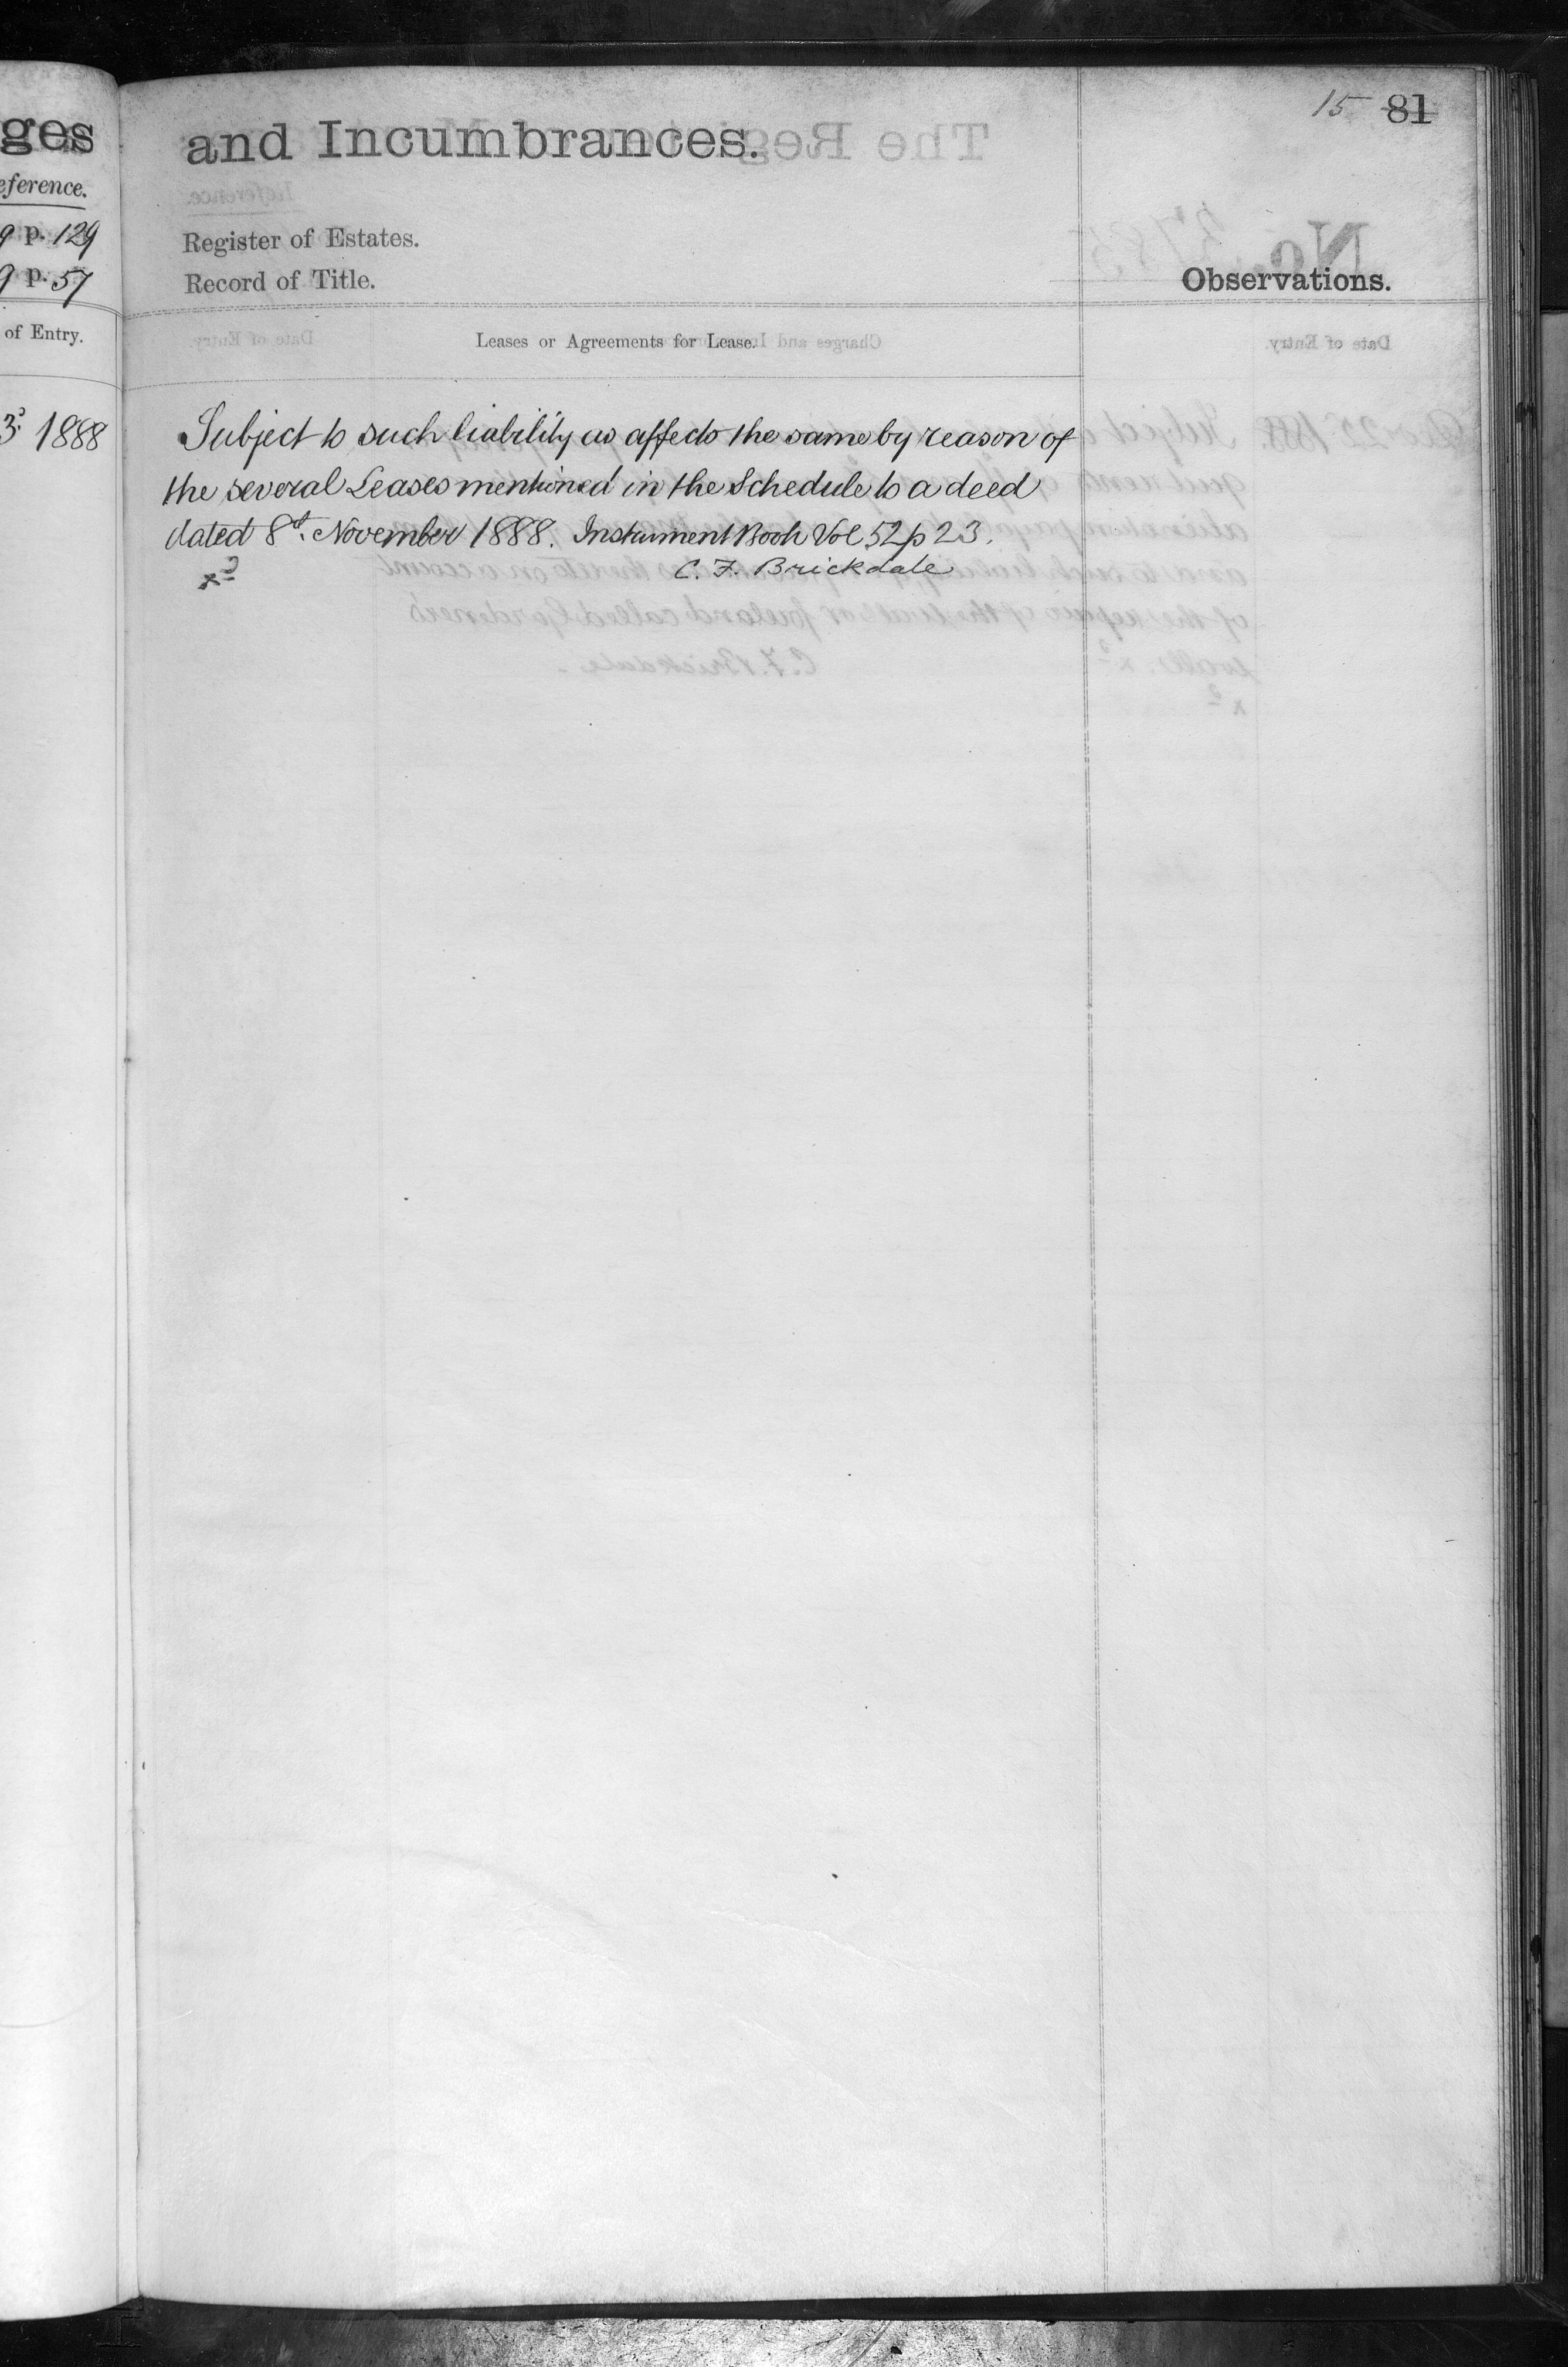 ges
eference.
9 p. 129
9 p. 57
of Entry.
3d 1888
15 81
and Incumbrances.
Register of Estates.
Record of Title.
Observations.
Leases or Agreements for Lease.
Subject to such liability as affects the same by reason of
the several Leases mentioned in the Schedule to a deed
dated 8th. November 1888. Instrument Book Vol 52 p 23.
C. F. Brickdale